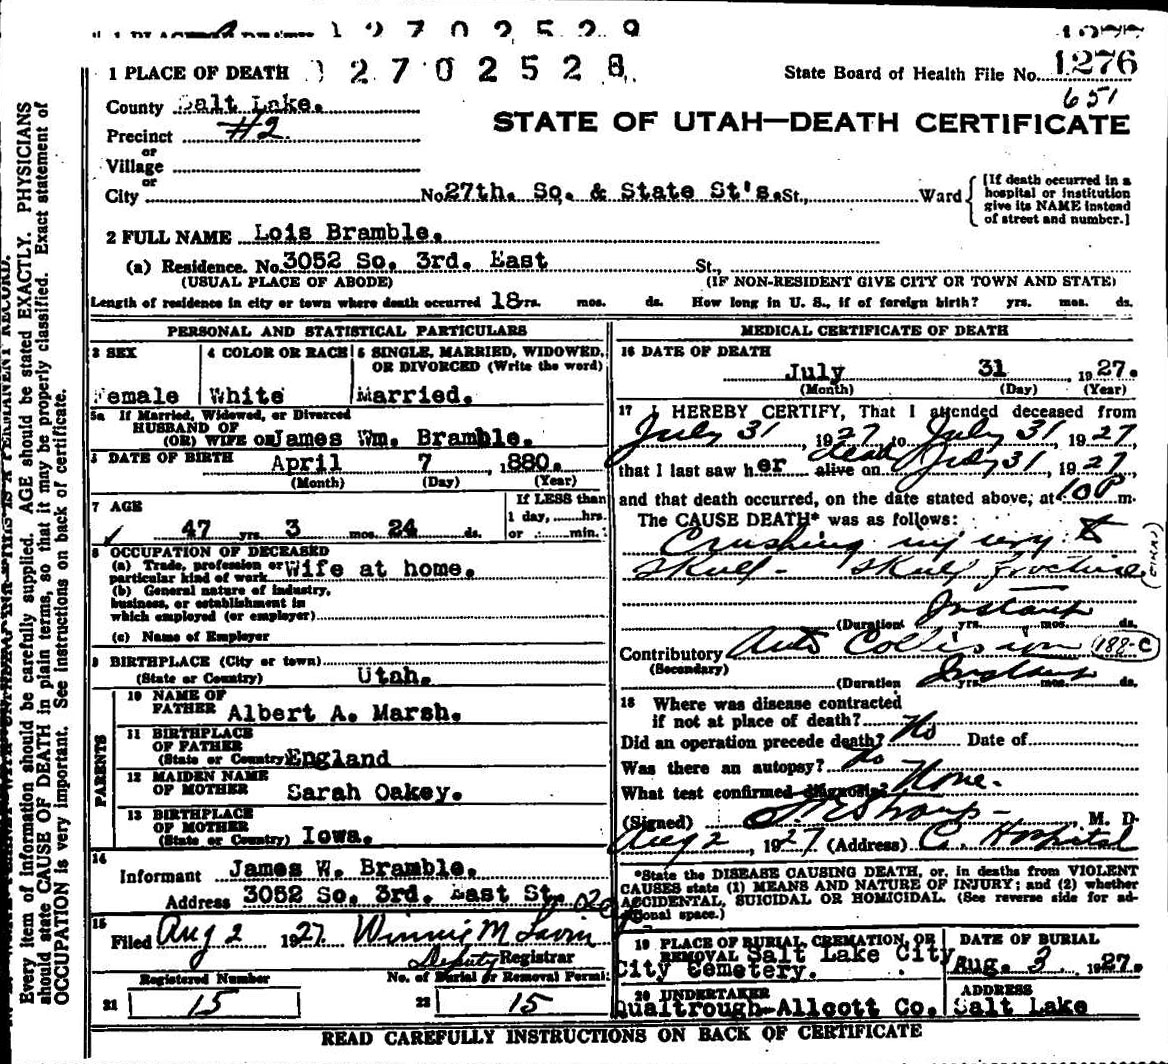 1 PLACE OF DEATH 12702529
1 PLACE OF DEATH 12702528 State Board of Health File No. 1276
County Salt Lake. 651
Precinct #2 STATE OF UTAH—DEATH CERTIFICATE
or
Village
or
City No. 27th. So. & State St's. St., Ward [If death occurred in a hospital or institution give its NAME instead of street and number.]
2 FULL NAME Lois Bramble.
(a) Residence. No. 3052 So. 3rd. East St.,
(USUAL PLACE OF ABODE) (IF NON-RESIDENT GIVE CITY OR TOWN AND STATE)
Length of residence in city or town where death occurred 18 yrs. mos. ds. How long in U. S., if of foreign birth? yrs. mos. ds.
PERSONAL AND STATISTICAL PARTICULARS
3 SEX 4 COLOR OR RACE 5 SINGLE, MARRIED, WIDOWED, OR DIVORCED (Write the word)
Female White Married.
5a If Married, Widowed, or Divorced
HUSBAND OF
(OR) WIFE OF James Wm. Bramble.
DATE OF BIRTH April 7, 1880.
(Month) (Day) (Year)
7 AGE If LESS than
1 day, ......hrs.
47 yrs. 3 mos. 24 ds. or ......min.
8 OCCUPATION OF DECEASED
(a) Trade, profession or
particular kind of work Wife at home.
(b) General nature of industry,
business, or establishment in
which employed (or employer)
(c) Name of Employer
9 BIRTHPLACE (City or town)
(State or Country) Utah.
PARENTS
10 NAME OF
FATHER Albert A. Marsh.
11 BIRTHPLACE
OF FATHER
(State or Country) England
12 MAIDEN NAME
OF MOTHER Sarah Oakey.
13 BIRTHPLACE
OF MOTHER
(State or Country) Iowa.
14
Informant James W. Bramble.
Address 3052 So. 3rd. East St.
15
Filed Aug 2 1927 Winnie M Lavin
Deputy Registrar
Registered Number No. of Burial or Removal Permit
21 15 22 15
MEDICAL CERTIFICATE OF DEATH
16 DATE OF DEATH
July 31 1927.
(Month) (Day) (Year)
17 I HEREBY CERTIFY, That I attended deceased from
July 31, 1927 to July 31, 1927
that I last saw her alive dead on July 31, 1927
and that death occurred, on the date stated above, at 100 P m.
The CAUSE DEATH* was as follows:
Crushing injury to
skull - skull fracture
Instant
(Duration) yrs. mos. ds.
Contributory Auto Collision 188-C
(Secondary)
Instant
(Duration yrs. mos. ds.
18 Where was disease contracted
if not at place of death? No
Did an operation precede death? Date of
Was there an autopsy? No
What test confirmed diagnosis? None.
(Signed) , M. D.
Aug 2, 1927 (Address) C. Hospital
*State the DISEASE CAUSING DEATH, or, in deaths from VIOLENT
CAUSES state (1) MEANS AND NATURE OF INJURY; and (2) whether
ACCIDENTAL, SUICIDAL OR HOMICIDAL. (See reverse side for ad-
ditional space.)
19 PLACE OF BURIAL, CREMATION, OR REMOVAL DATE OF BURIAL
Salt Lake City
City Cemetery. Aug. 3 1927.
20 UNDERTAKER ADDRESS
Qualtrough-Allcott Co. Salt Lake
READ CAREFULLY INSTRUCTIONS ON BACK OF CERTIFICATE
Every item of information should be carefully supplied. AGE should be stated EXACTLY. PHYSICIANS
should state CAUSE OF DEATH in plain terms, so that it may be properly classified. Exact statement of
OCCUPATION is very important. See instructions on back of certificate.